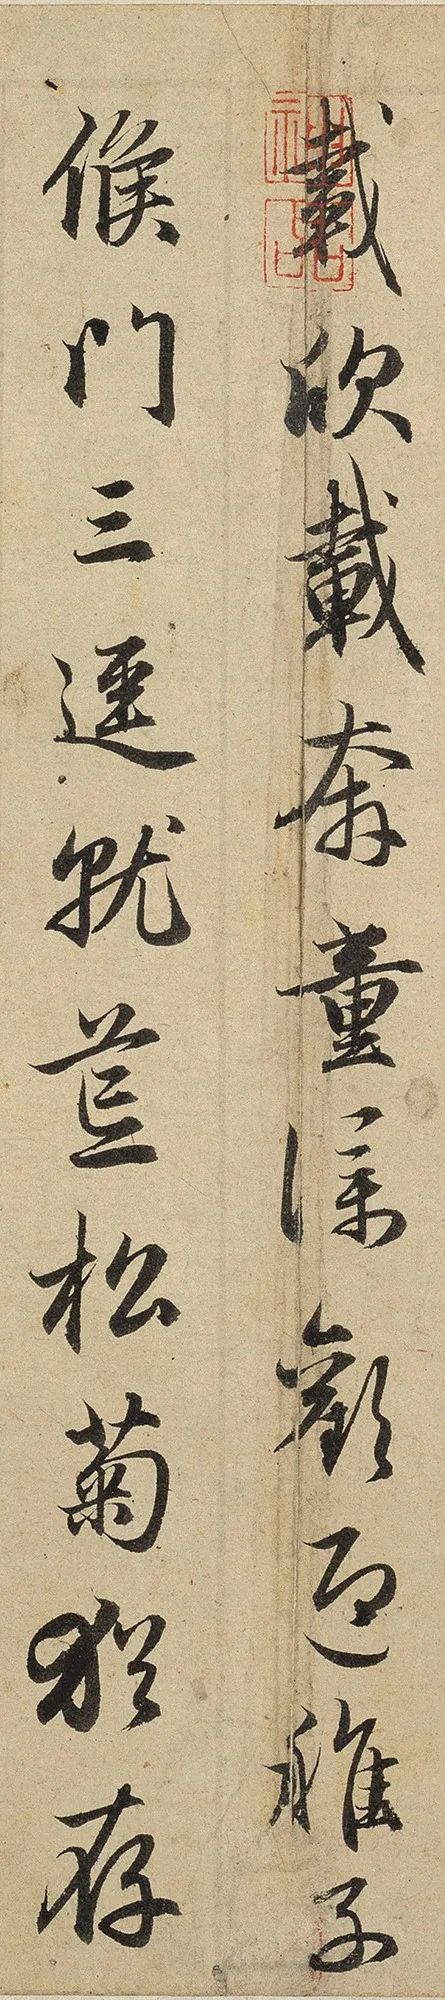 載欣載奔童僕歡迎稚子
候門三逕就荒松菊猶存